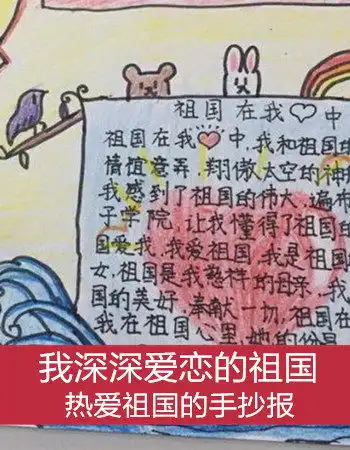 祖国在我♡中
祖国在我♡中,我和祖国的
情意弄,翔傲太空的神
我感到了祖国的伟大,遍布
子学院,让我懂得了祖国的
国爱我,我爱祖国,我是祖国
女,祖国是我慈祥的母亲,我
国的美好,奉献一切,祖国在
我在祖国心里,她的份
我深深爱恋的祖国
热爱祖国的手抄报